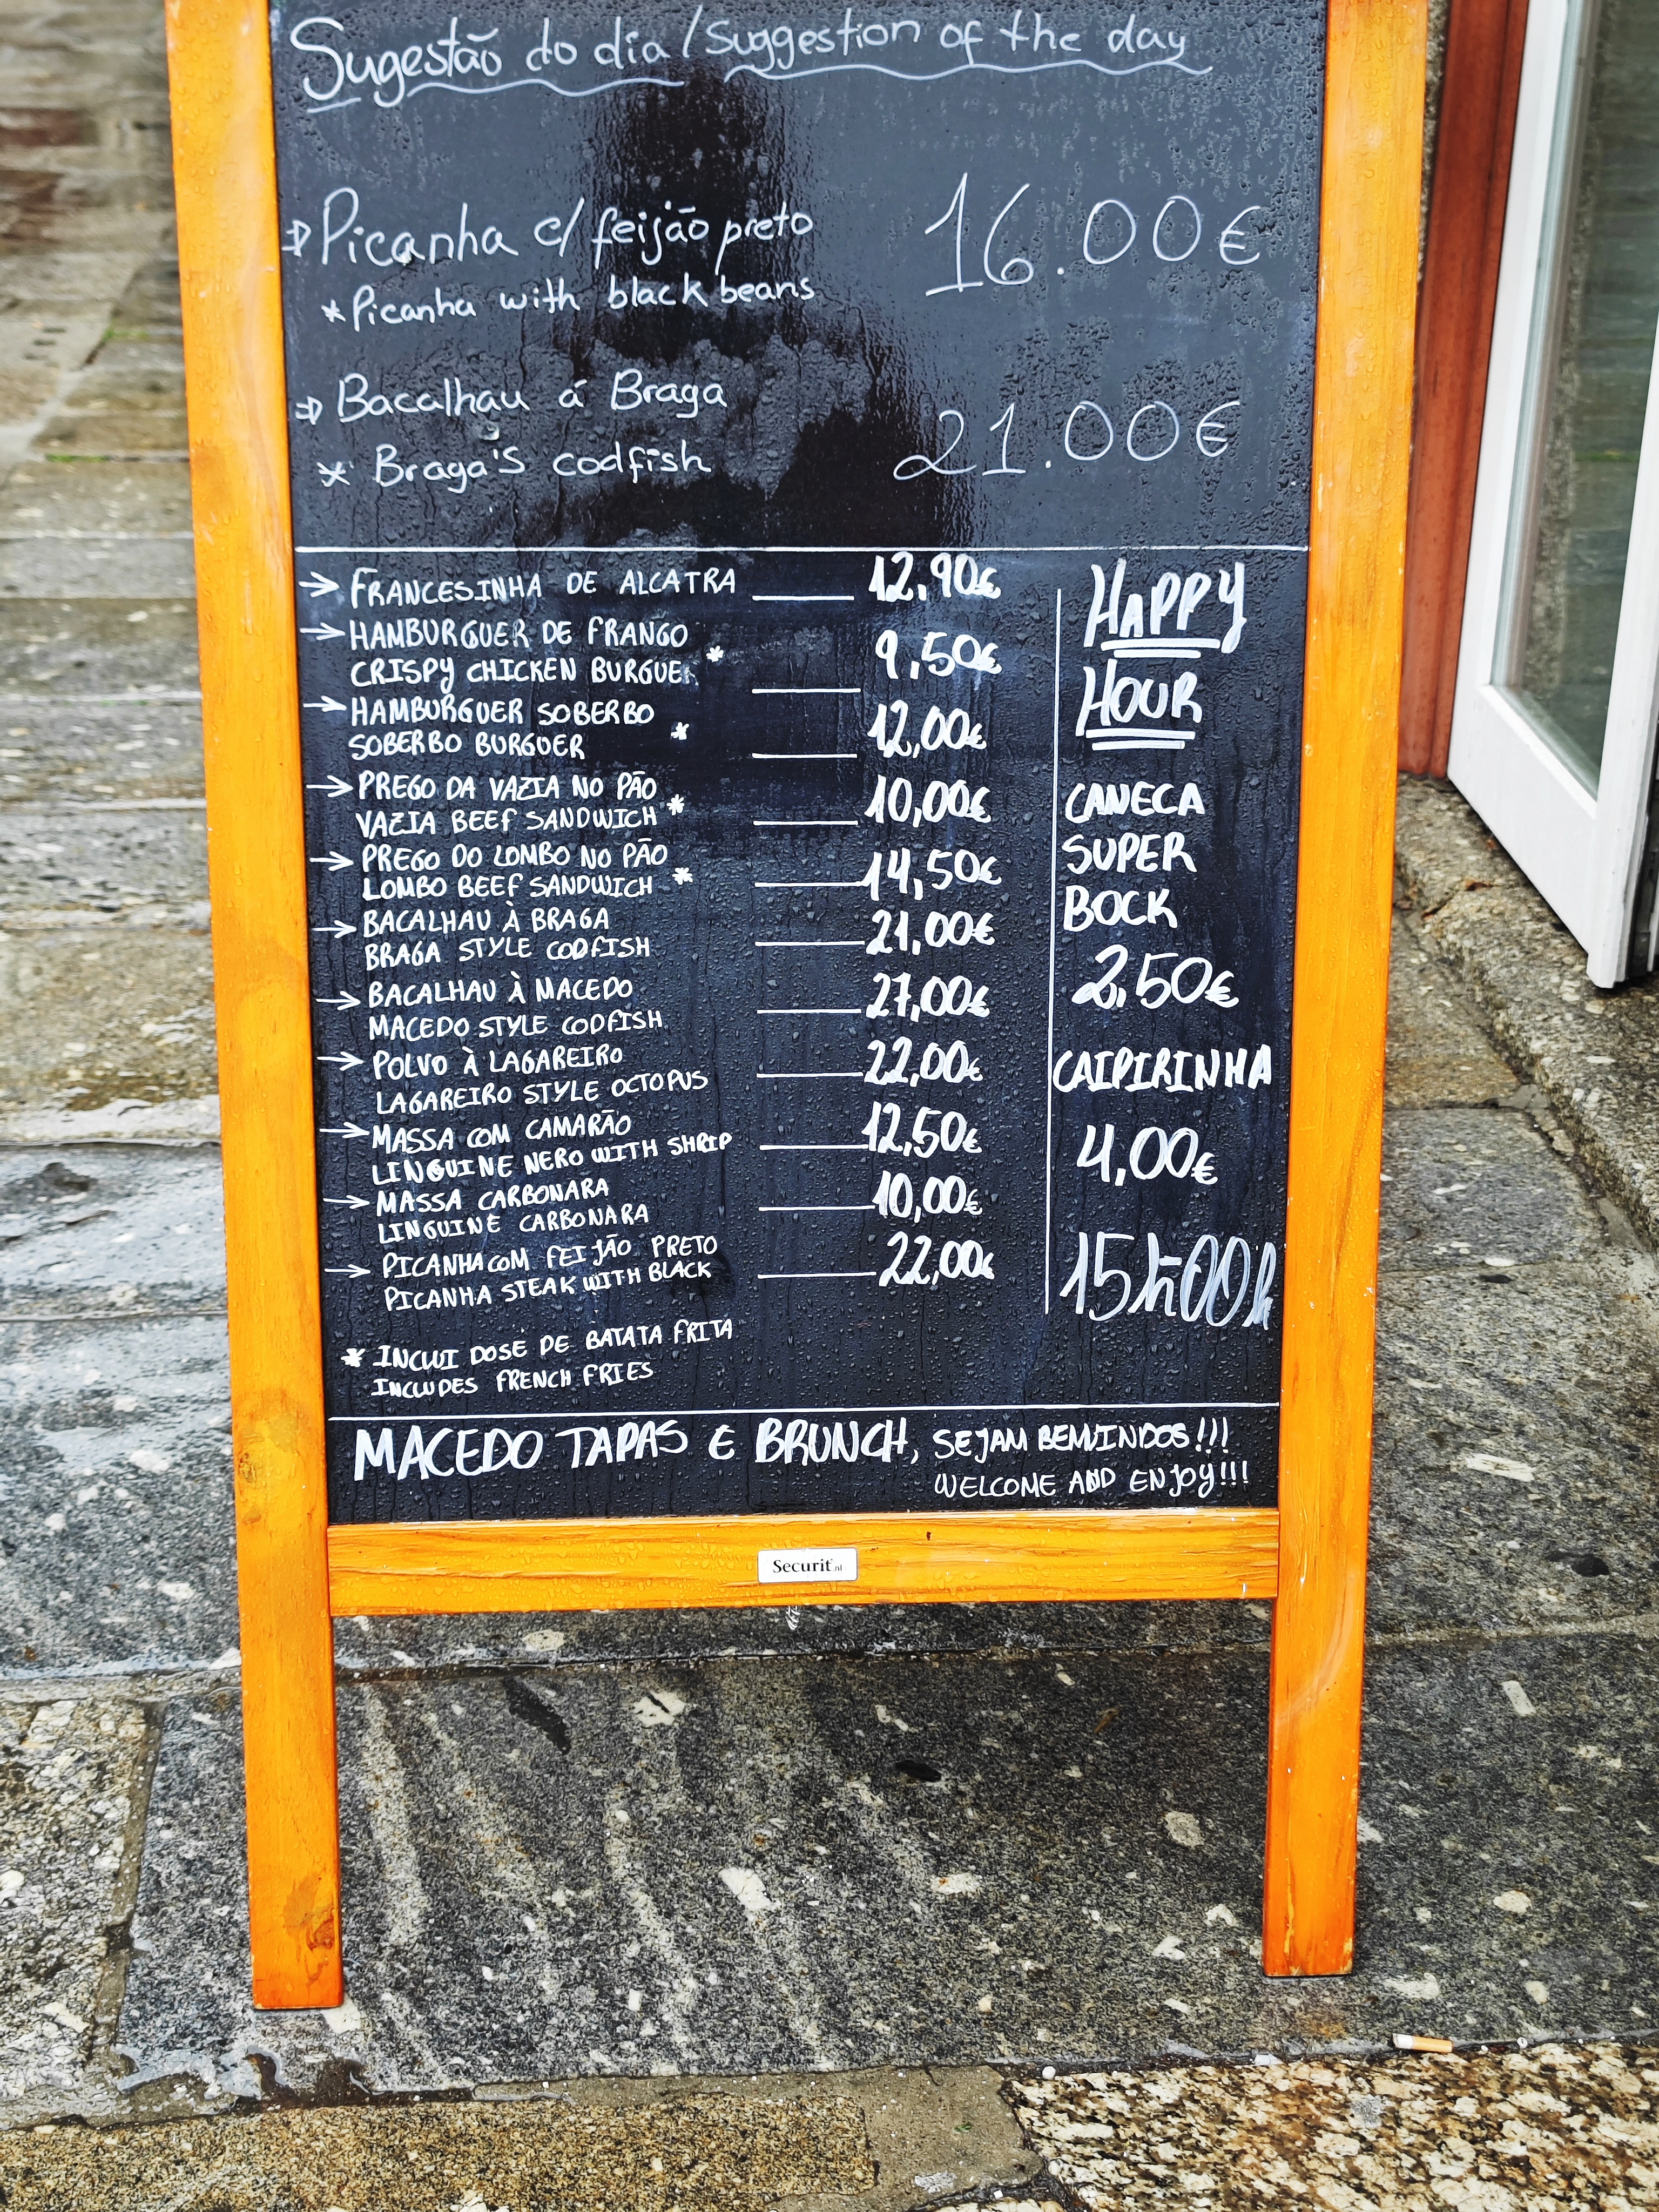 Sugestão do dia / Suggestion of the day
Picanha c/ feijão preto 16.00€
* Picanha with black beans
Bacalhau á Braga 21.00€
* Braga's codfish
→ FRANCESINHA DE ALCATRA 12,90€
→ HAMBURGUER DE FRANGO
CRISPY CHICKEN BURGUE * 9,50€
→ HAMBURGUER SOBERBO
SOBERBO BURGUER * 12,00€
→ PREGO DA VAZIA NO PÃO
VAZIA BEEF SANDWICH * 10,00€
→ PREGO DO LOMBO NO PÃO
LOMBO BEEF SANDWICH * 14,50€
→ BACALHAU À BRAGA 21,00€
BRAGA STYLE CODFISH
→ BACALHAU À MACEDO 27,00€
MACEDO STYLE CODFISH
→ POLVO À LAGAREIRO 22,00€
LAGAREIRO STYLE OCTOPUS
→ MASSA COM CAMARÃO 12,50€
LINGUINE NERO WITH SHRIP
→ MASSA CARBONARA 10,00€
LINGUINE CARBONARA
→ PICANHA COM FEIJÃO PRETO 22,00€
PICANHA STEAK WITH BLACK
* INCLUI DOSE DE BATATA FRITA
INCLUDES FRENCH FRIES
HAPPY
HOUR
CANECA
SUPER
BOCK
2,50€
CAIPIRINHA
4,00€
MACEDO TAPAS E BRUNCH, SEJAM BEMVINDOS!!!
WELCOME AND ENJOY!!!
Securit.nl